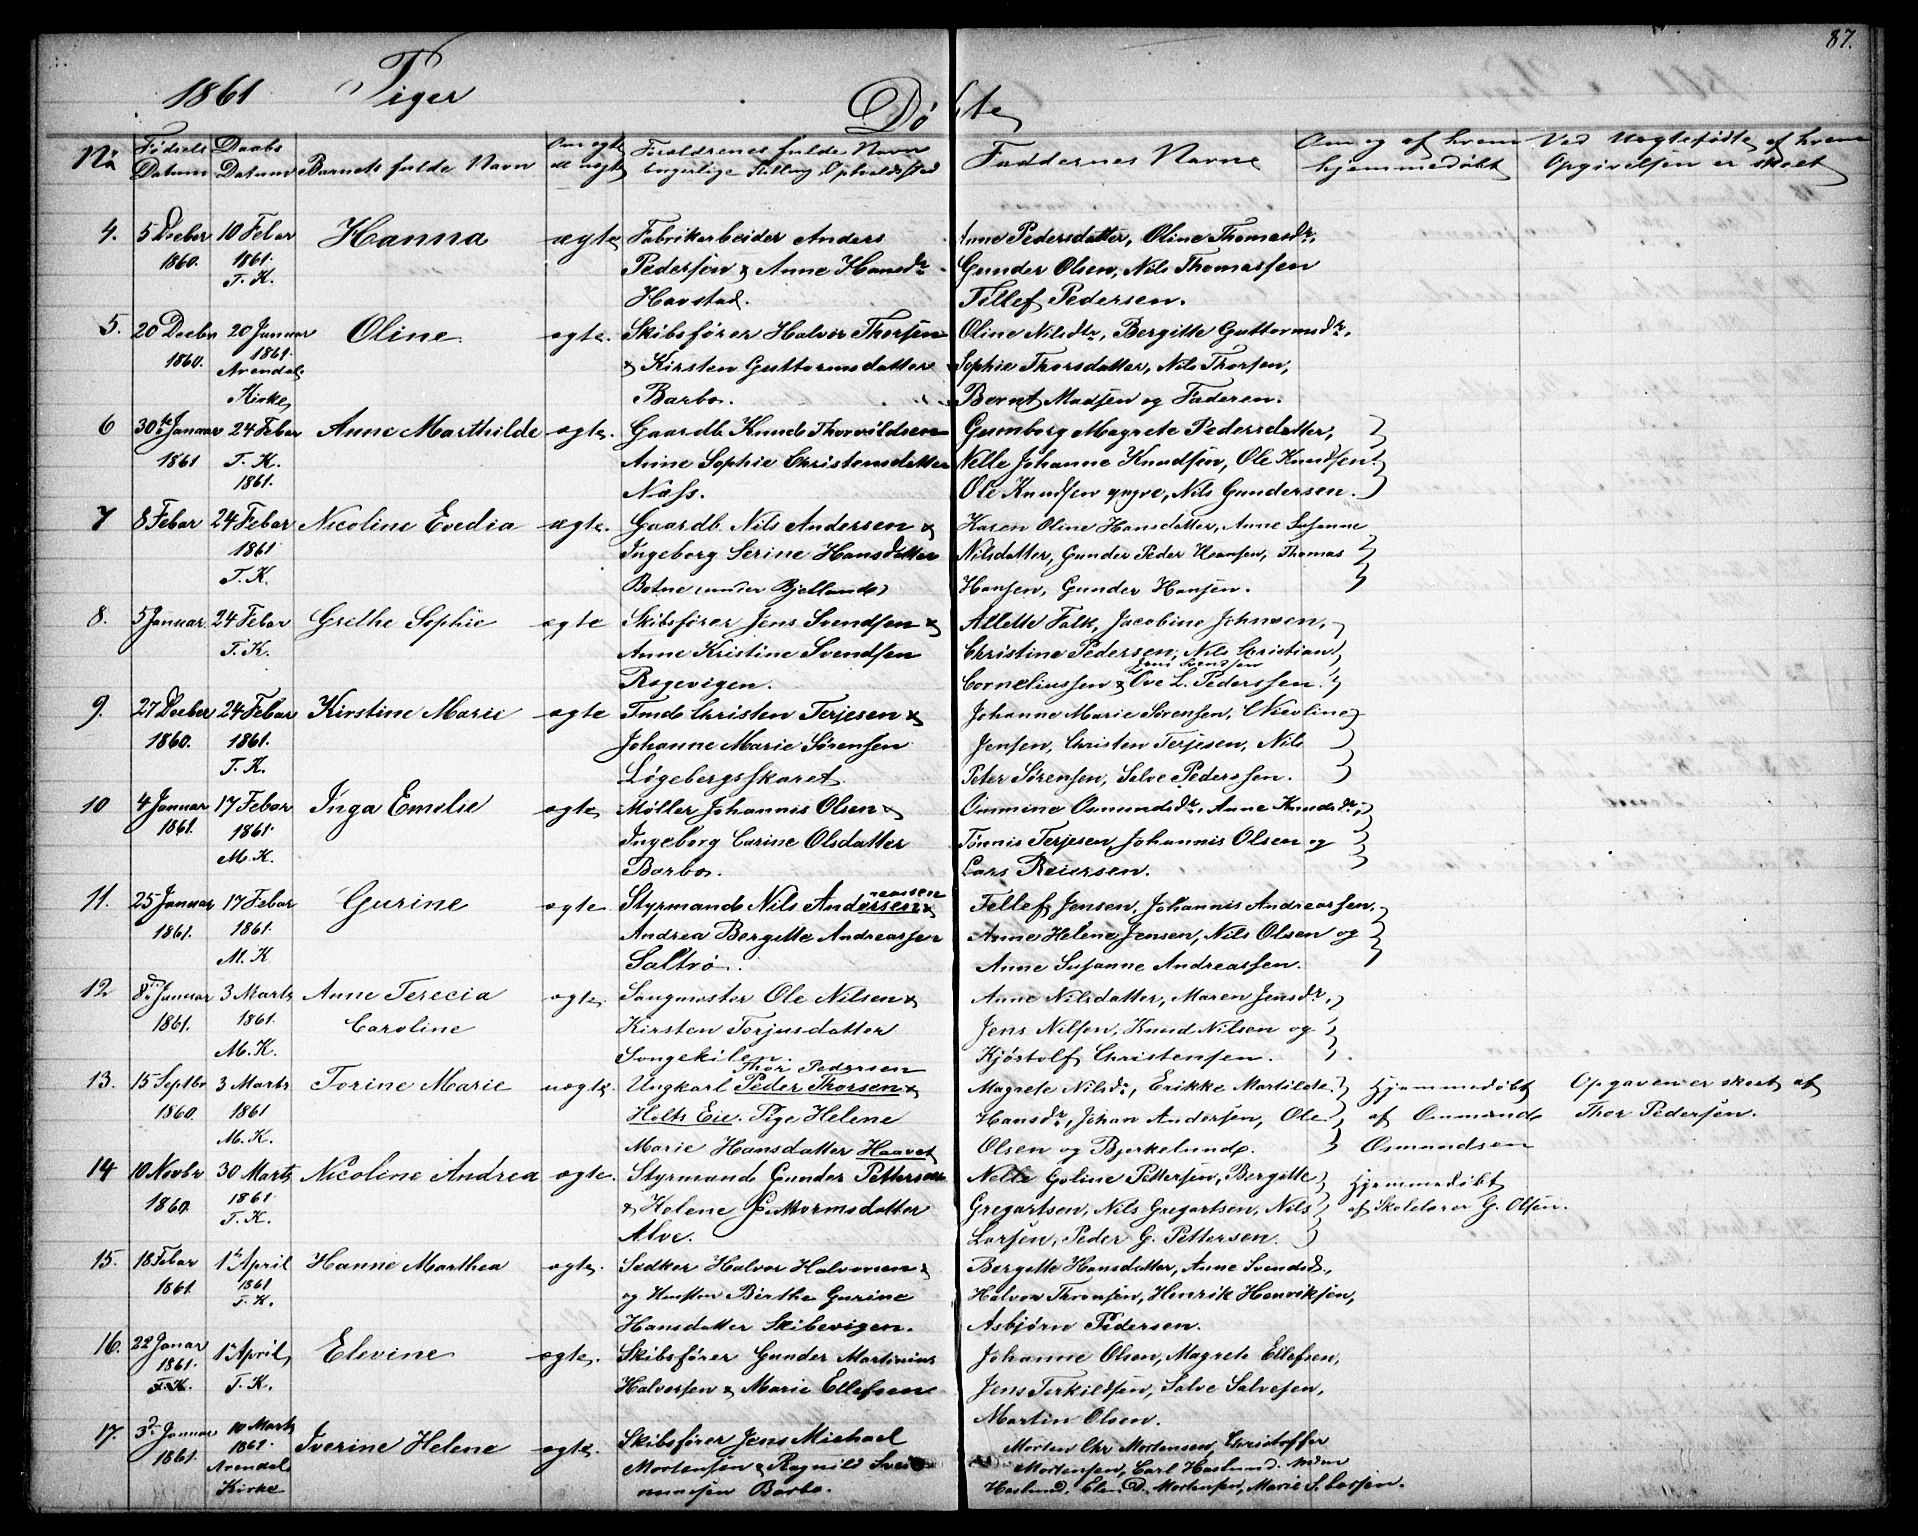 87.
1861 Piger Døbte
No Fødsels Datum Daabs Datum Barnets fulde Navn Om ægte el. uægte Forældrenes fulde Navn borgerlige Stilling, Opholdssted Faddernes Navne Om og af hvem hjemmedøbt Ved Uægtefødte af hvem Opgivelsen er skeet
4. 5 Decber 10 Febar Hanna ægte Fabrikarbeider Anders Anne Pedersdatter, Oline Thomasdr,
1860. 1861. Pedersen & Anne Hansdr Gunder Olsen, Nils Thomassen
T. K. Havstad. Tellef Pedersen.
5. 20 Decbr 20 Januar Oline ægte. Skibsfører Halvor Thorsen Oline Nilsdtr, Bergitte Guttormsdr,
1860. 1861. Arendal & Kirsten Guttormsdatter Sophie Thorsdatter, Nils Thorsen,
Kirke Barbo. Bernt Madsen og Faderen.
6 30te Januar 24 Febar Anne Marthilde ægte. Gaardb. Knud Thorvildsen Gumborg Magrete Pedersdatter,
1861 T. K. Anne Sophie Christensdatter Nelle Johanne Knudsen, Ole Knudsen
1861. Næss. Ole Knudsen yngre, Nils Gundersen.
7 8 Febar 24 Febar Nicoline Evedia ægte. Gaardb. Nils Andersen & Karen Oline Hansdatter, Anne Susanne
1861 Ingeborg Serine Hansdatter Nilsdatter, Gunder Peder Hansen, Thomas
T. K. Botne under Bjelland Hansen, Gunder Hansen.
8. 5 Januar 24 Febar Grethe Sophie ægte Skibsfører Jens Svendsen & Allette Falk, Jacobine Johnsen,
T. K. Anne Kristine Svendsen Christine Pedersen, Nils Christian
Jens Svendsen
Ragevigen. Corneliussen & Ove L. Pederssen.
9. 27 Decber 24 Febar Kirstine Marie ægte Tmd Christen Terjesen & Johanne Marie Sørensen, Nicoline
1860. 1861. Johanne Marie Sørensen Jensen, Christen Terjesen, Nils
T. K. Løgebergsskaret Peter Sørensen, Salve Pederssen.
10 4 Januar 17 Febar Inga Emelie ægte Møller Johannis Olsen & Ommine Osmundsdr, Anne Knudsdr,
1861. 1861. Ingeborg Carine Olsdatter Tønnis Terjesen, Johannis Olsen og
M. K. Barbo. Lars Reiersen.
11. 25 Januar 17 Febar Gurine ægte Styrmand Nils Andersen reassen & Tellef Jensen, Johannis Andreassen,
1861. 1861. Andrea Bergitte Andreassen Anne Helene Jensen, Nils Olsen og
M. K. Saltrø. Anne Susanne Andreassen.
12 8de Januar 3 Marts Anne Terecia ægte Saugmester Ole Nilsen & Anne Nilsdatter, Maren Jensdr,
1861. 1861. Caroline Kirsten Torjusdatter Jens Nilsen, Knud Nilsen og
M. K. Songekilen. Kjøstolf Christensen.
Thor Pedersen
13. 15 Septbr 3 Marts Torine Marie uægte. Ungkarl Peder Thorsen & Magrete Nilsdr, Erikke Martilde Hjemmedøbt Opgaven er skeet af
1860. 1861 Holts Eie. Pige Helene Hansdr, Johan Andersen, Ole af Ommund Thor Pedersen.
M. K. Marie Hansdatter Haavet Olsen og Bjerkelund. Osmundsen
14 10 Novbr 30 Marts Nicoline Andrea ægte. Styrmand Gunder Pettersen Nelle Goline Pettersen, Bergitte Hjemmedøbt
1860. 1861 & Helene Guttormsdatter Gregartsen, Nils Gregartsen, Nils af Skolelærer G. Olsen.
T. K. Alve. Larsen, Peder G. Pettersen.
15. 18 Febar 1ste April Hanne Marthea ægte. Halvor Halvorsen Bergitte Hansdatter, Anne Svendsd.,
1861. 1861 og Birthe Gurine Halvor Thronsen, Henrik Henriksen,
T. K. Hansdatter Skibevigen. Asbjørn Pedersen.
16. 22 Janar 1ste April, Elevine ægte. Skibsfører Gunder Martinius Johanne Olsen, Magrete Ellefsen,
1861. T. K. Halvorsen & Marie Ellefsen Jens Terkildsen, Salve Salvesen,
T. K. Martin Olsen.
17. 3de Januar 10 Marts Iverine Helene ægte. Skibsfører Jens Michael Morten Chr Mortensen, Christoffer
1861. 1861. Arendal Mortensen & Ragnild Svei Mortensen, Carl Haslund.
Kirke nunsen Barbo. Haslund, Elen D. Mortensen, Marie S. Larsen.